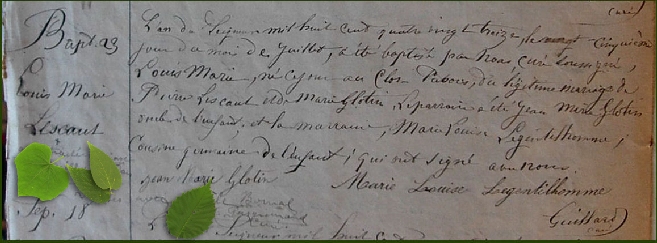 (curé)
Bapt. 23
Louis Marie
Lescaut
L'an du Seigneur mil huit cent quatre vingt treize, le cinquième
jour du mois de Juillet, a été baptisé par Nous curé soussigné,
Louis Marie, né ce jour au Clos, du légitime mariage de
Pierre Lescaut et de Marie Glotin, Le parrain a été Jean Marie Glotin
oncle de l'enfant, et la marraine, Marie Louise Legentilhomme,
Cousine germaine de l'enfant; qui ont signé avec nous.
Jean Marie Glotin Marie Louise Legentilhomme
Guittard
curé
Sep. 18
Seigneur mil huit cent